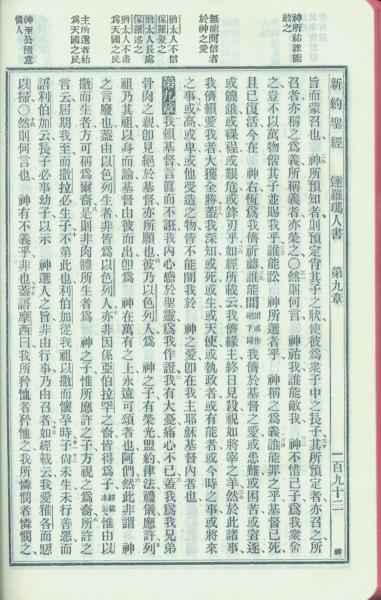 新約聖經 達羅瑪人書 第九章 一百九十二
神所祐誰能
敵之
無能間信者
於神之愛
猶太人不信
保羅憂之
猶太人長處
保羅述之
猶太人不盡
爲天國之民
主所選者始
爲天國之民
神至公隨意
憐人
旨而蒙召也 神所預知者則預定肖其子之狀使彼爲衆子中之長子其所預定者亦召之所
召者亦稱之爲義所稱義者亦榮之〇然則何言 神祐我誰能敵我 神不惜己子爲我衆舍
之豈不以萬物偕其子並賜我乎誰能訟 神所選者乎 神稱之爲義誰能罪之乎基督已死
且已復活今在 神右恆爲我儕祈禱誰能間間或作絕下同我儕於基督之愛或患難或困苦或窘逐
或饑餓或裸裎或艱危或鋒刃乎如經所載云我儕緣主終日見殺視如將宰之羊然於此諸事
我儕賴愛我者大獲全勝蓋我深知或死或生或天使或執政者或有能者或今時之事或將來
之事或高或卑或他受造之物皆不能間我於 神之愛卽在我主耶穌基督內者也
第九章 我賴基督言眞而不誑我內心憑於聖靈爲我作證我有大憂痛心不已蓋我爲我兄弟
骨肉之親卽見絕於基督亦所願也彼乃以色列人爲 神之子有榮光盟約律法禮儀應許列
祖乃其祖以身而論基督由彼而出卽爲 神在萬有之上永遠可頌者也阿們然此非謂 神
之言廢也蓋由以色列生者非皆爲以色列人亦非因係亞伯拉罕之裔皆得爲子經載惟由以
撒而生者方可稱爲爾裔是則非肉體所生者爲 神之子惟所應許之子方視之爲裔所許之
言云屆期我至而撒拉必生子不第此也利伯加從我祖以撒而懷孕時子尙未生未行善惡而
語利伯加云長子必事幼子以示 神選人之旨非由行事乃由召者如經載云我愛雅各而惡
以掃〇然則何言也 神有不義乎非也蓋語摩西曰我所矜恤者矜恤之我所憐憫者憐憫之